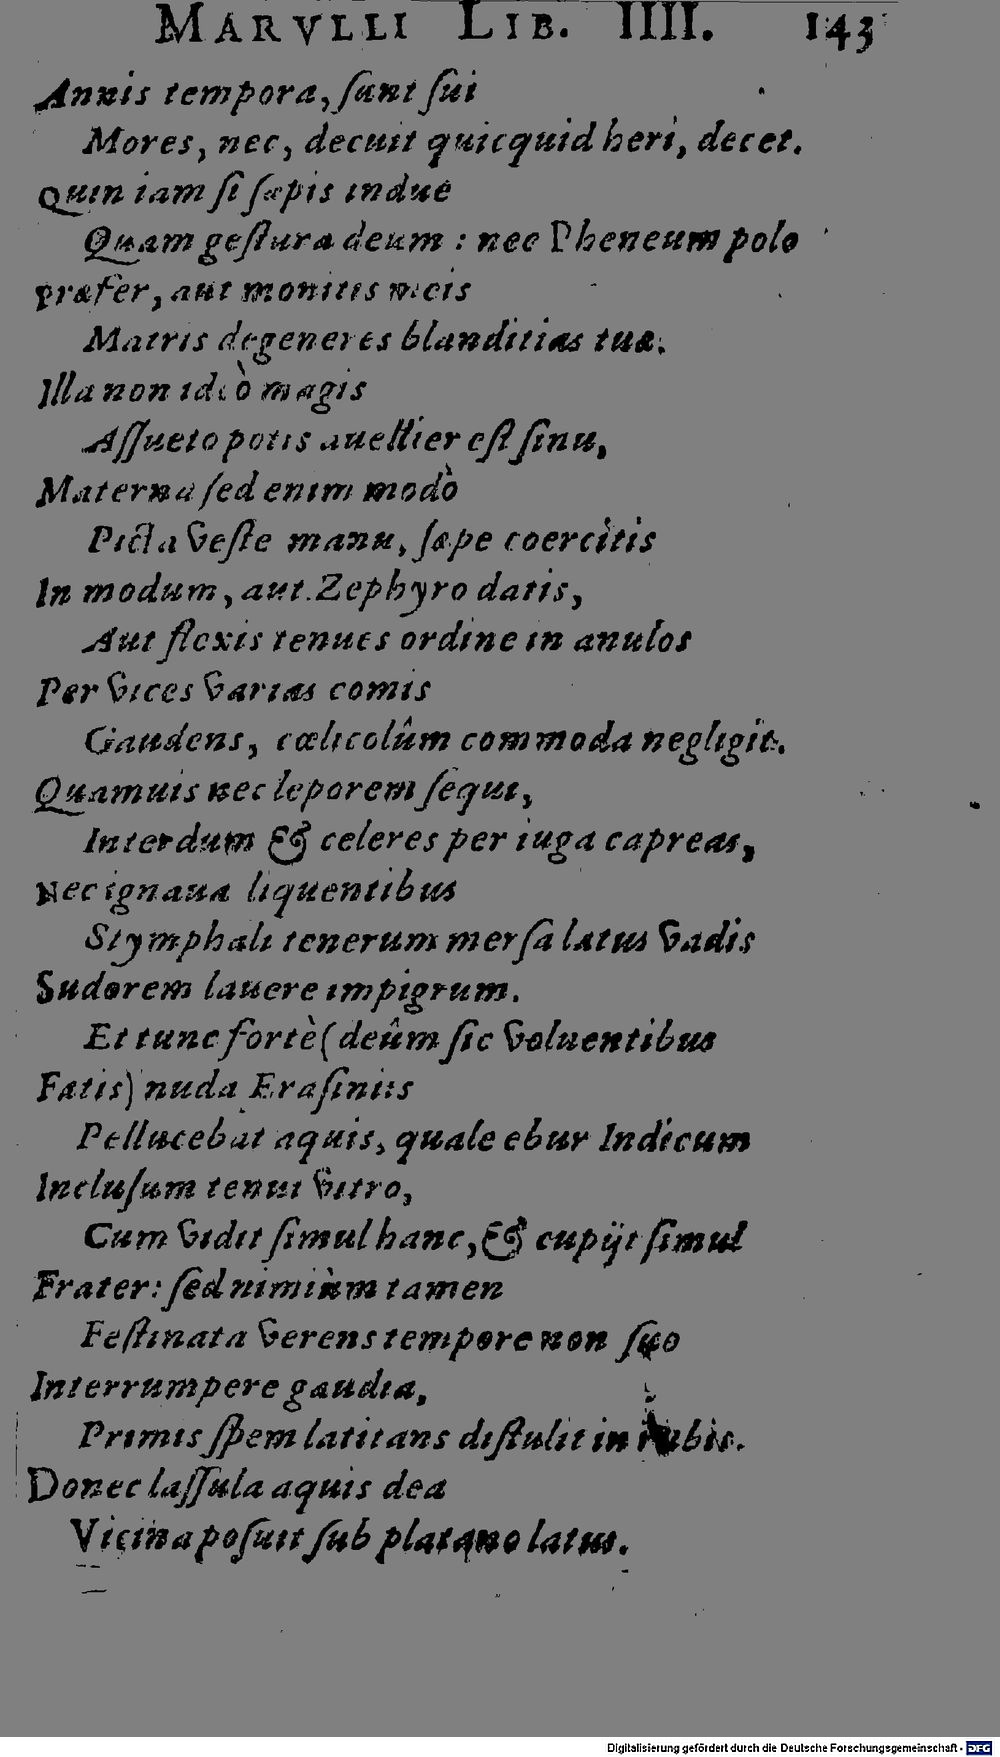 MARVLLI LIB. IIII. 143
Annis tempora, ſunt ſui
Mores, nec, decuit quicquid heri, decet.
Quin iam ſi ſapis indue
Quam geſtura deum : nec Pheneum polo
præfer, aut monitis meis
Matris degeneres blanditias tuæ.
Illa non ideò magis
Aſſueto potis auellier eſt ſinu,
Materna ſed enim modò
Picta veſte manu, ſæpe coercitis
In modum, aut Zephyro datis,
Aut flexis tenues ordine in anulos
Per vices varias comis
Gaudens, cœlicolûm commoda negligit.
Quamuis nec leporem ſequi,
Interdum & celeres per iuga capreas,
Nec ignaua liquentibus
Stymphali tenerum merſa latus vadis
Sudorem lauere impigrum.
Et tunc fortè ( deûm ſic voluentibus
Fatis) nuda Eraſiniis
Pellucebat aquis, quale ebur Indicum
Incluſum tenui vitro,
Cum vidit ſimul hanc, & cupijt ſimul
Frater: ſed nimiùm tamen
Feſtinata verens tempore non ſuo
Interrumpere gaudia,
Primis ſpem latitans diſtulit in rubis.
Donec laſſula aquis dea
Vicina poſuit ſub platano latus.
Digitalisierung gefördert durch die Deutsche Forschungsgemeinschaft - DFG